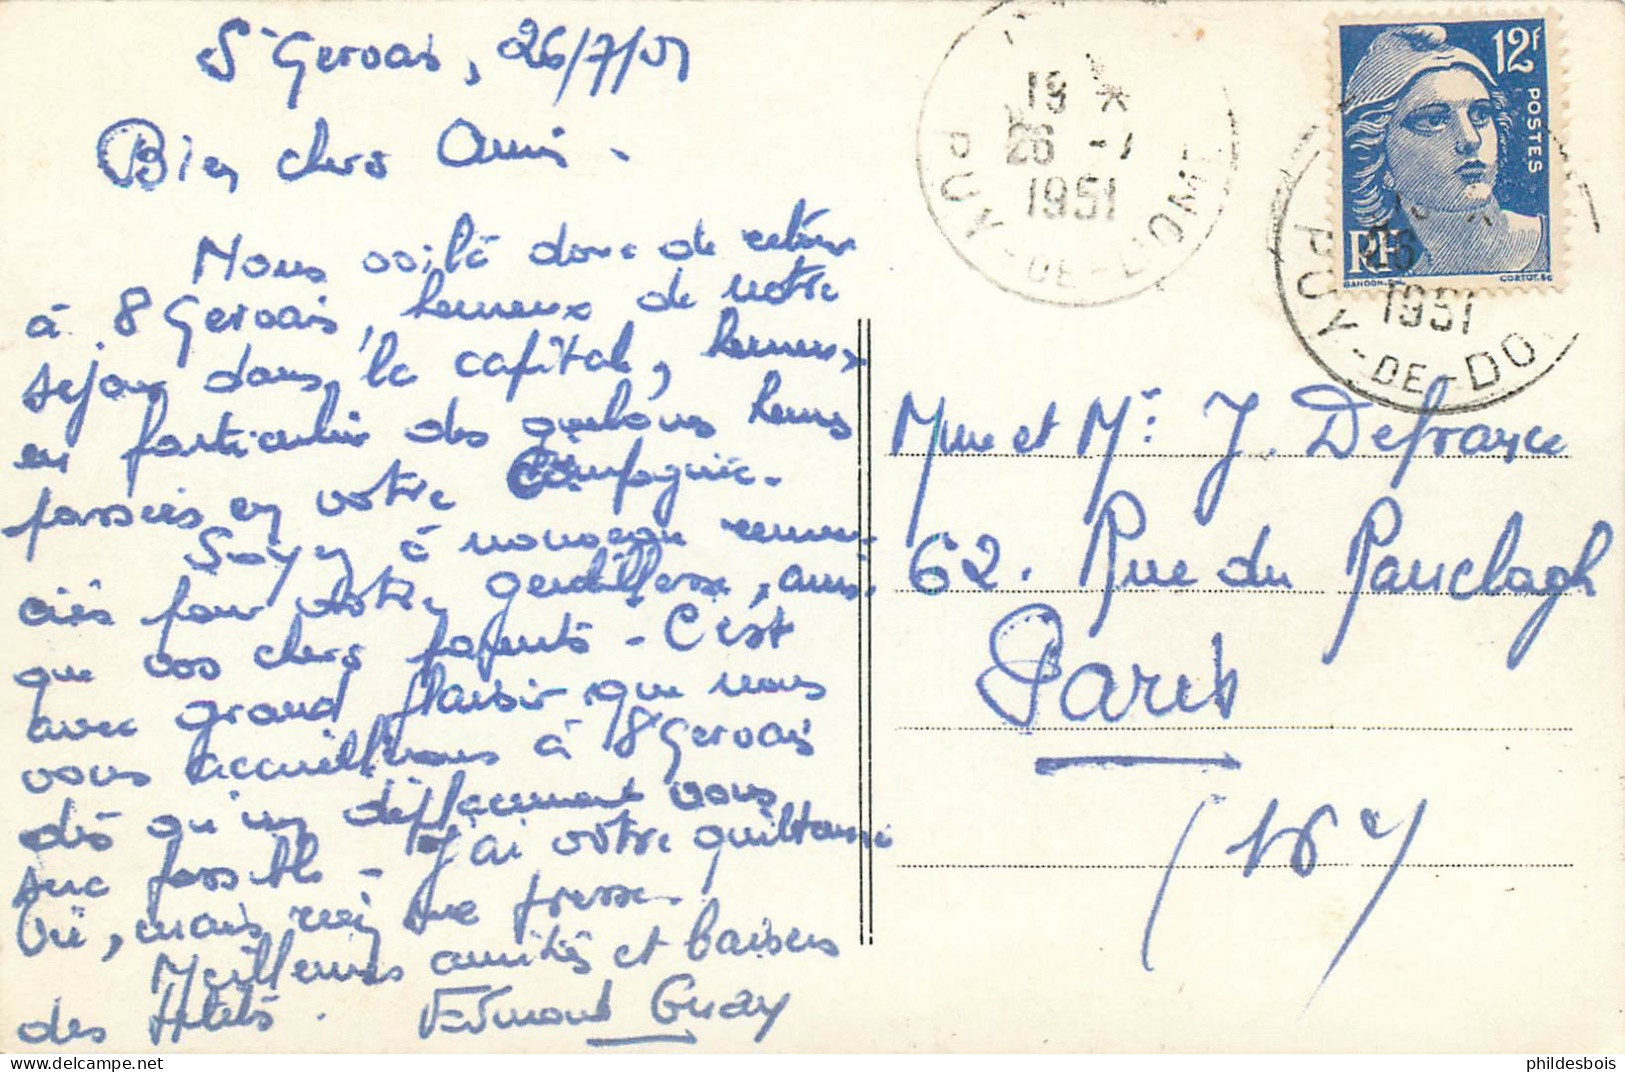 St Gervais, 26/7/51
Bien chers Amis -
Nous voilà donc de retour
à St Gervais, heureux de notre
séjour dans la capitale, heureux
en particulier des quelques heures
passées en votre Compagnie.
Soyez à nouveau remer-
ciés pour votre gentillesse, ainsi
que vos chers parents - C'est
avec grand plaisir que nous
vous accueillerons à St Gervais
dès qu'un déplacement vous
sera possible - J'ai votre
vu, mais rien ne presse.
Meilleures amitiés et baisers
des . Edmond Guay
19 *
26 - 7
1951
PUY-DE-DOME
12F
POSTES
RF
GANDON
CORTOT.SC
26
1951
PUY-DE-DO
Mme et Mr. J. Defrance
62. Rue du Ranelagh
Paris
(16e)
phildesbois